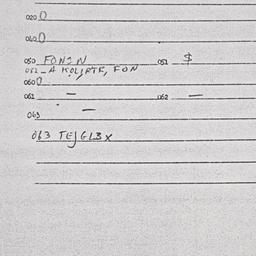 020 0
040 0
050 FONIN 051 $
052 - A KOLIATE, FON
060 0
061 - 062 -
063 -
063 TEJGL3X